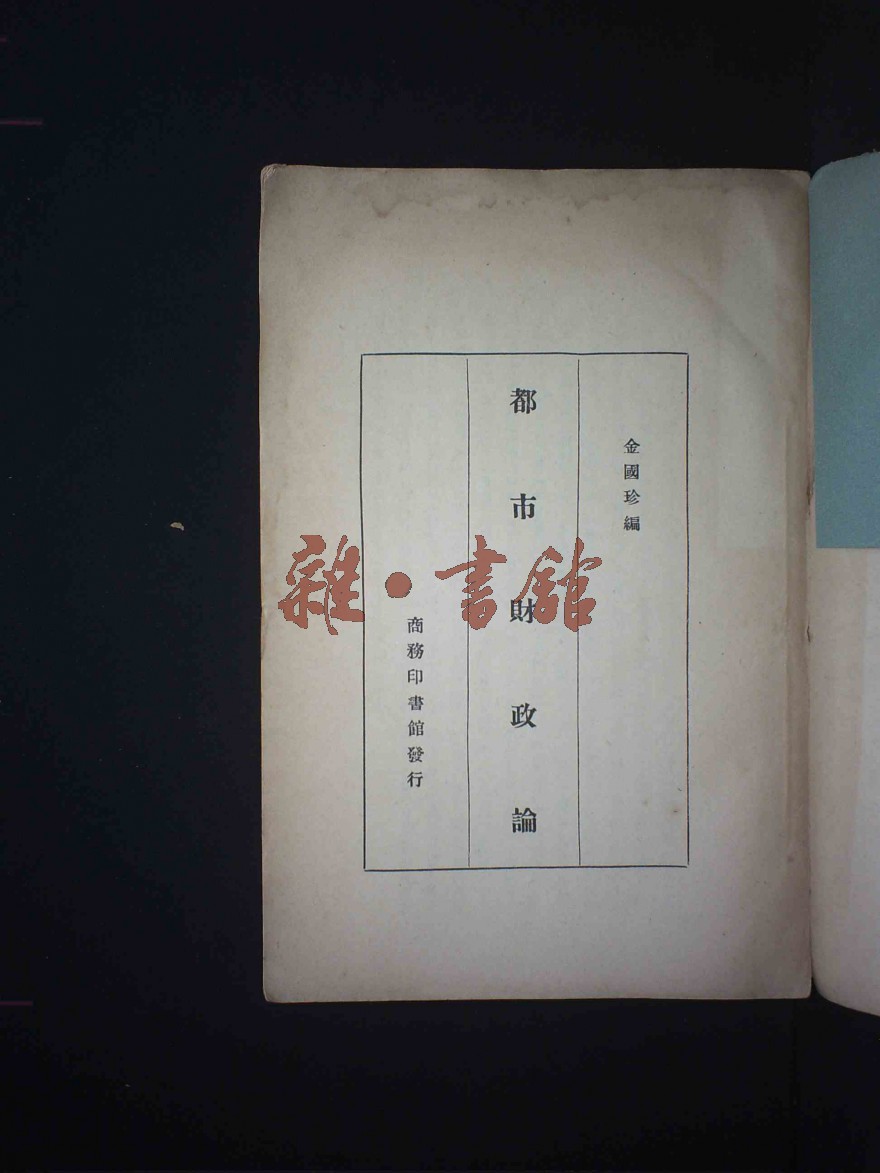 金國珍編
都市財政論
商務印書館發行
雜·書館